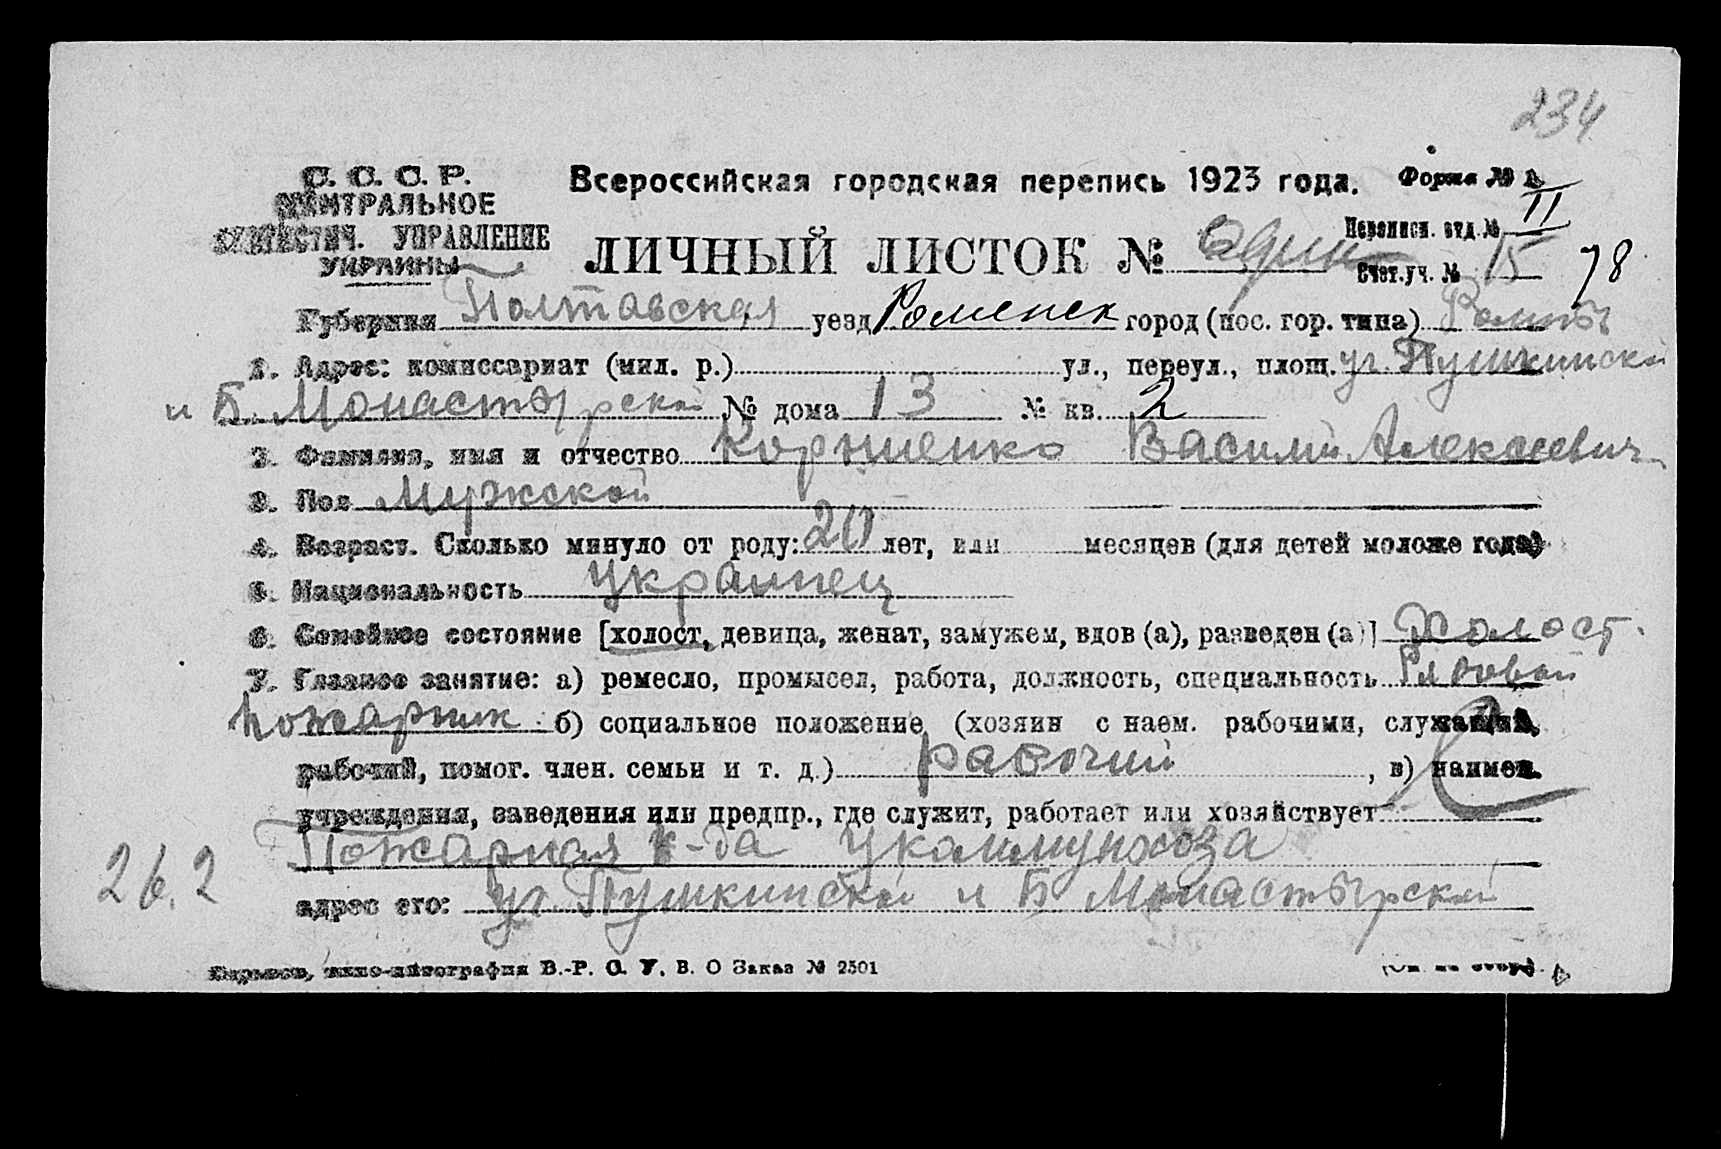 234
С. С. С. Р. Всероссийская городская перепись 1923 года. Форма №
ЦЕНТРАЛЬНОЕ
СТАТИСТИЧ. УПРАВЛЕНИЕ
УКРАИНЫ
ЛИЧНЫЙ ЛИСТОК № Один
Переписн. отд. № II
Счет. уч. № 15 78
Губерния Полтавская уезд Роменск город (пос. гор. типа) Ромны
1. Адрес: комиссариат (мил. р.) ул., переул., площ. уг. Пушкинской
и Б. Монастырской № дома 13 № кв. 2
2. Фамилия, имя и отчество Корниенко Василий Алексеевич
3. Пол Мужской
4. Возраст. Сколько минуло от роду: 20 лет, или месяцев (для детей моложе года)
5. Национальность Украинец
6. Семейное состояние [холост, девица, женат, замужем, вдов (а), разведен (а)] Холост.
7. Главное занятие: а) ремесло, промысел, работа, должность, специальность Рядовой
пожарник б) социальное положение (хозяин с наем. рабочими, служащий,
рабочий, помог. член. семьи и т. д.) рабочий, в) наимен.
учреждения, заведения или предпр., где служит, работает или хозяйствует
Пожарная к-да Укоммунхоза
26.2
адрес его: уг. Пушкинской и Б Монастырской
Харьков, типо-литография В.-Р. О. У. В. О Заказ № 2501